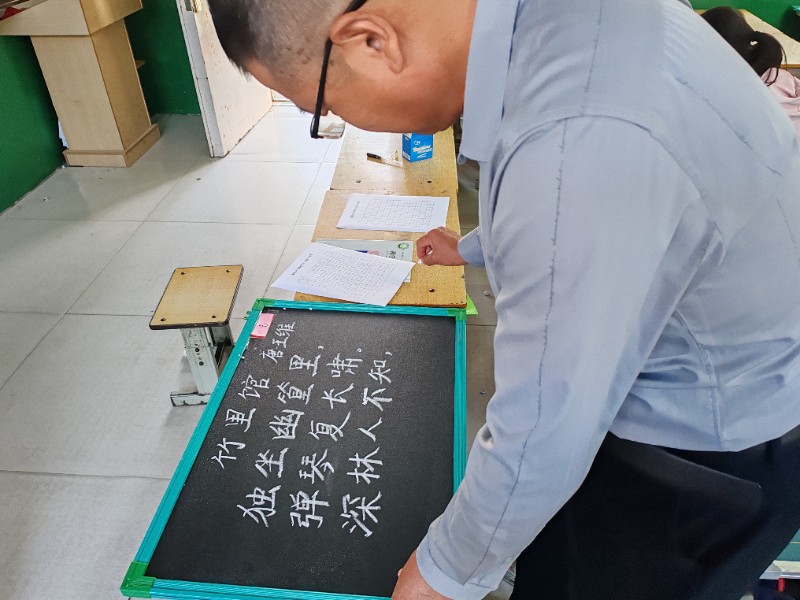 竹里馆 唐王维
独坐幽篁里，
弹琴复长啸。
深林人不知，